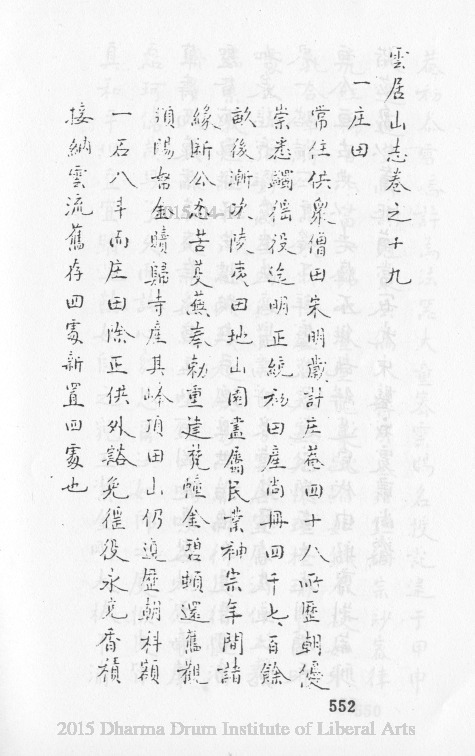 雲居山志卷之十九
一庄田
常住供衆僧田宋明歲計庄菴四十八所歷朝優
崇悉蠲徭役迄明正統初田產尚冊四千七百餘
畝後漸凌夷田地山園盡屬民業神宗年間諸
緣斷公志苦芟蕪奉勅重建梵幢金碧頓還舊觀
頒賜帑金贖歸寺產其峰頂田山仍遵歷朝科額
一石八斗而庄田除正供外豁免徭役永充香積
接納雲流舊存四處新置四處也
552
2015 Dharma Drum Institute of Liberal Arts